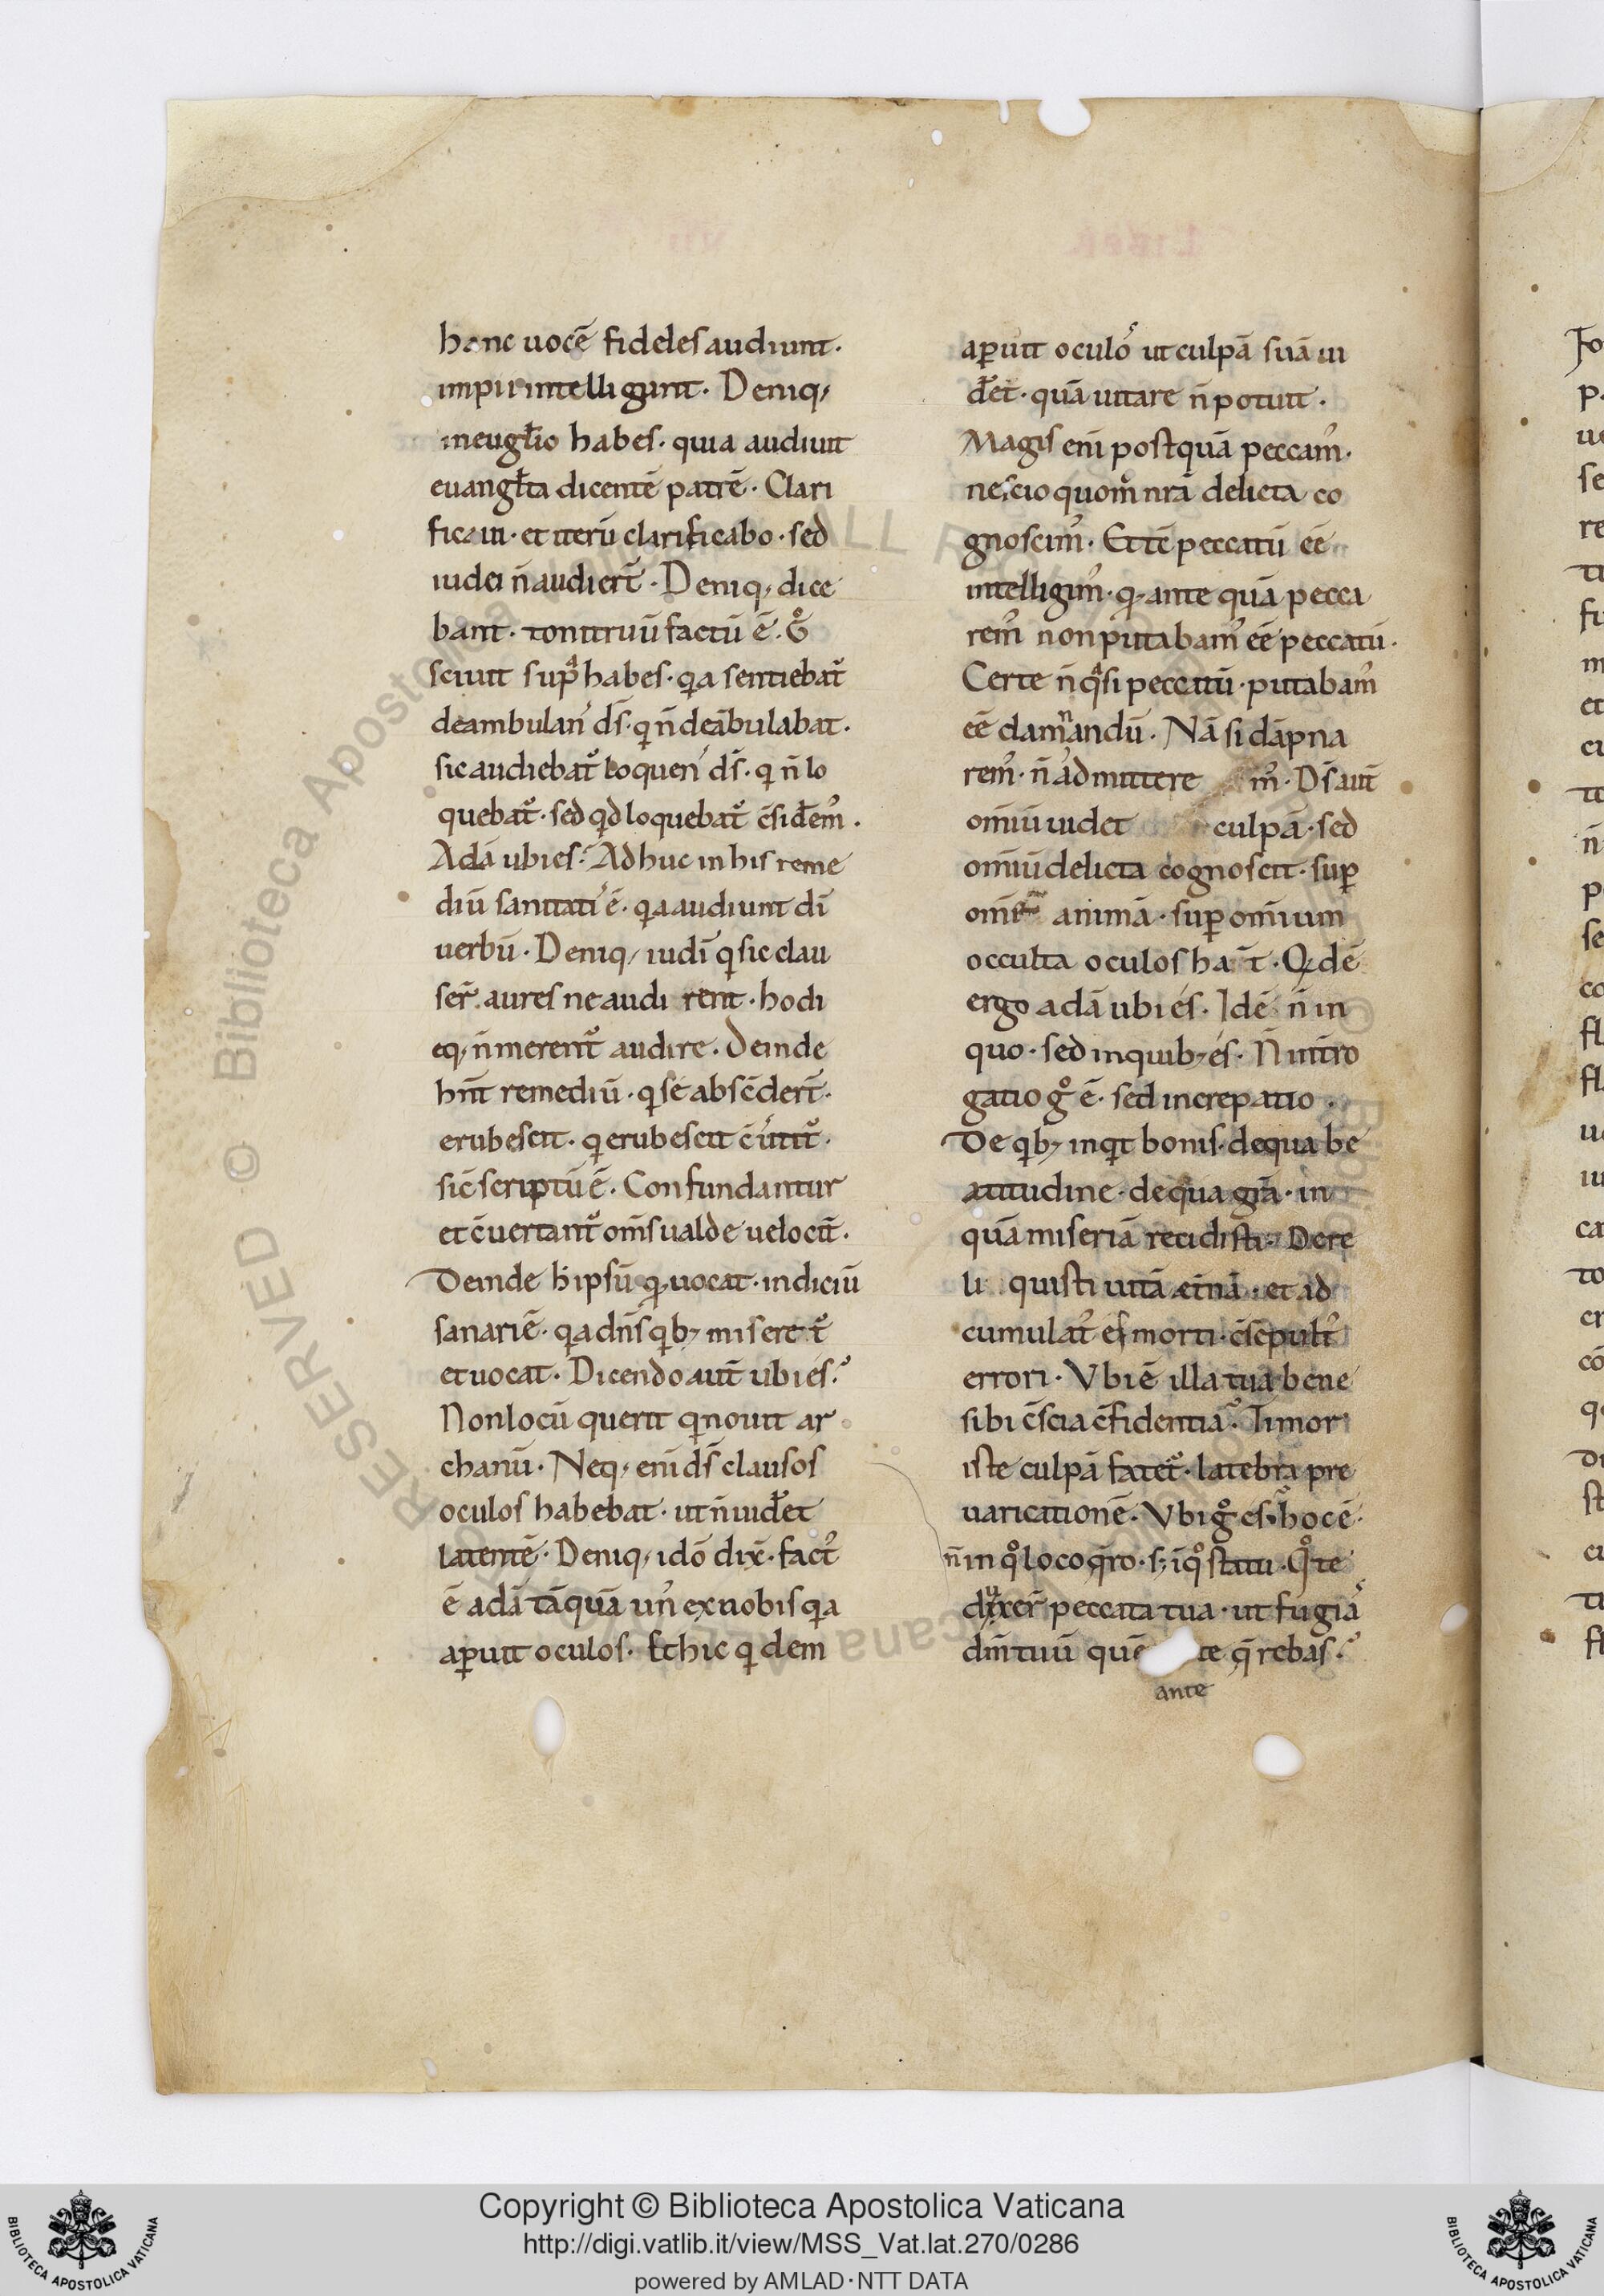 hanc uocē fideles audiunt.
impii n̄ intelligunt. Deniq;
in eugłio habes. quia audiuit
euangłta dicentē patrē. Clari
ficaui. et iterū clarificabo. sed
iudei n̄ audiert̄. Deniq; dice
bant. tonitruū factū ē. Gͦ
sciuit supᵃ habes. qa sentiebat᷑
deambulan' ds̄. q n̄ deābulabat.
sic audiebat᷑ loquen' ds̄. q n̄ lo
quebat᷑. sed qd loquebat᷑ c̄siđem'.
Adā ubi es? Adhuc in his reme
diū sanitati' ē. qa audiunt dī
uerbū. Deniq; iudī q sic clau
ser̄ aures ne audirent. hodi
eq; n̄ merent᷑ audire. Deinde
hn̄t remediū. q se absc̄dert̄.
erubescit. q erubescit c̄uitt᷑.
sic̄ scriptū ē. Confundantur
et c̄uertant᷑ om̄s ualde uelocit̄.
Deinde h̄ ipsū q uocat. indiciū
sanariē. qa dn̄s qb; miseret᷑
et uocat. Dicendo aut̄ ubi es?
Non locū querit q nouit ar
chanū. Neq; eni ds̄ clausos
oculos habebat. ut n̄ uiđet
latentē. Deniq; idō dix̄. fact'
ē adā tāquā un' ex nobis qa
aꝑuit oculos. Et hic q dem
aꝑuit oculo' ut culpā suā ui
đet. quā uitare n̄ potuit.
Magis eni postquā peccam'.
nescio quom̊ nrā delicta co
gnoscim'. Et tē peccatū eē
intelligim'. q ante quā pecca
rem' non putabam' eē peccatū.
Certe n̄ qᵃsi peccatū. putabam'
eē damⁿandū. Nā si dāpna
rem'. n̄ admittere m'. Ds̄ aut̄
omīū uidet culpā. sed
omīū delicta cognoscit. suꝑ
omē animā. suꝑ omīum
occulta oculos ha t̄. Q dē
ergo adā ubi es. Idē n̄ in
quo. sed in quib; es. N̄ int̄ro
gatio gͦ ē. sed increpatio.
De qb; inqt bonis. de qua be
atitudine. de qua gr̄a. in
quā miseriā recidisti. Dere
li quisti uitā et̄nā. et ad
cumulat' es morti. c̄sepult'
errori. Vbi ē illa tua bene
sibi c̄scia c̄fidentia? Timor
iste culpā fatet᷑. latebra pre
uaricationē. Vbi gͦ es? hoc ē.
n̄ in qͦ loco q̄ro. s; ī qͦ statu. Qͦ te
duxer̄ peccata tua. ut fugia'
dm̄ tuū quē te q̄rebas?
ante
Copyright © Biblioteca Apostolica Vaticana
http://digi.vatlib.it/view/MSS_Vat.lat.270/0286
powered by AMLAD·NTT DATA